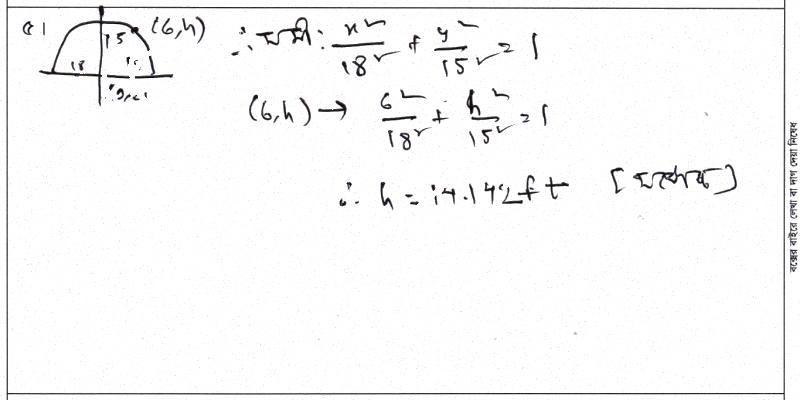 ৫।
15
(6,h)
18
∴ সমী: x²/18² + y²/15² = 1
(6,h) → 6²/18² + h²/15² = 1
∴ h = 14.142 ft
বক্সের বাইরে লেখা বা দাগ দেয়া নিষেধ